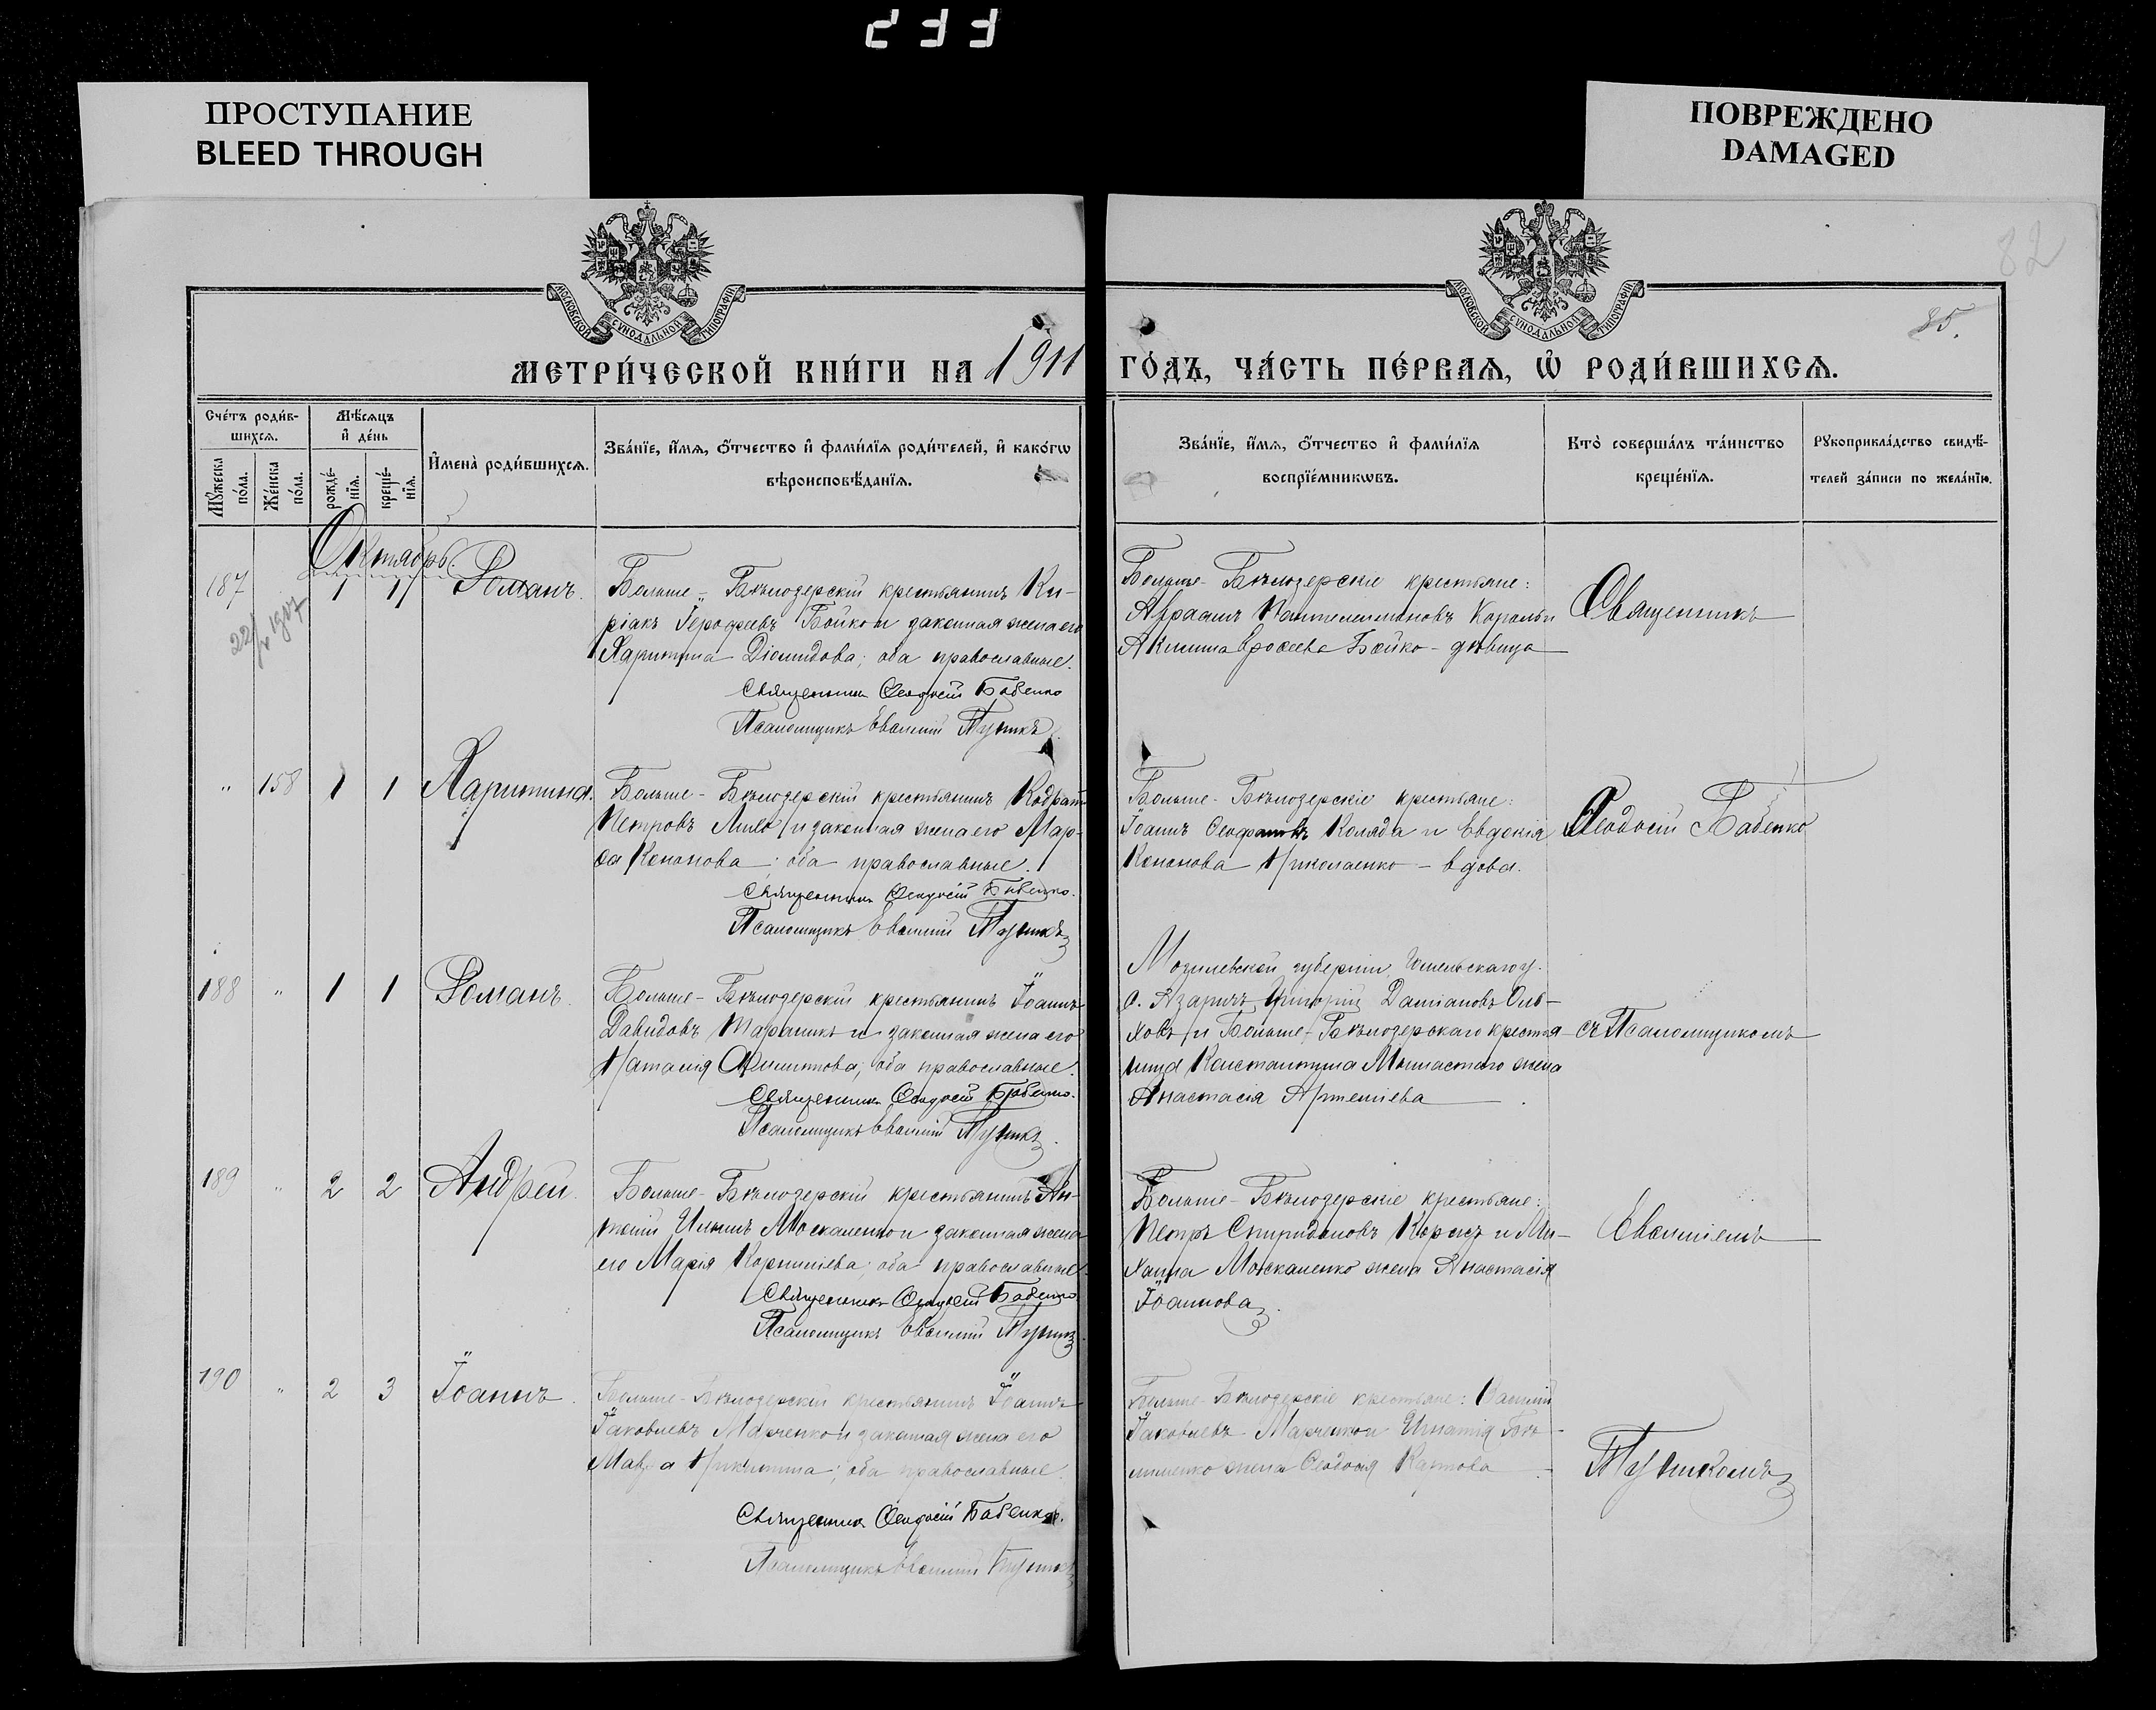 233
ПРОСТУПАНИЕ
BLEED THROUGH
ПОВРЕЖДЕНО
DAMAGED
82
85.
МОСКОВСКОЙ СѴНОДАЛЬНОЙ ТИПОГРАФІИ
МОСКОВСКОЙ СѴНОДАЛЬНОЙ ТИПОГРАФІИ
МЕТРИ́ЧЕСКОЙ КНИ́ГИ НА 1911
ГО́ДЪ, ЧА́СТЬ ПЕ́РВАѦ, Ѿ РОДИ́ВШИХСѦ.
Сче́тъ роди́в-
шихсѧ.
Мꙋ́жеска
по́ла.
Же́нска
по́ла.
Мѣ́сѧцъ
и҆ де́нь
рожде́-
нїѧ.
креще́-
нїѧ.
И҆мена̀ роди́вшихсѧ.
Зва́нїе, и҆́мѧ, ѻ҆́тчество и҆ фами́лїѧ роди́телей, и҆ како́гѡ
вѣроисповѣ́данїѧ.
Зва́нїе, и҆́мѧ, ѻ҆́тчество и҆ фами́лїѧ
воспрїе́мникѡвъ.
Кто̀ соверша́лъ та́инство
креще́нїѧ.
Рꙋкоприкла́дство свидѣ́-
телей за́писи по жела́нїю.
Октябрь.
187
1 1
Романъ.
Больше-Бѣлозерскій крестьянинъ Ки-
ріакъ Іерофеевъ Бойко и законная жена его
Харитина Діомидова; оба православные.
Священникъ Ѳеодосій Бабенко
Псаломщикъ Евѳимій
Больше-Бѣлозерскіе крестьяне:
Авраамъ Пантелеимоновъ и
Акилина Ерофеева Бойко - дѣвица
Священникъ
" 158 1 1
Харитина.
Больше-Бѣлозерскій крестьянинъ Кодратъ
Петровъ и законная жена его Мар-
ѳа Кононова; оба православные.
Священникъ Ѳеодосій Бабенко.
Псаломщикъ Евѳимій
Больше-Бѣлозерскіе крестьяне:
Іоаннъ Коляда и Евдокія
Кононова Николаенко - вдова.
Ѳеодосій Бабенко
188 " 1 1
Романъ.
Больше-Бѣлозерскій крестьянинъ Іоаннъ
Давидовъ и законная жена его
Наталія Филиппова; оба православные.
Священникъ Ѳеодосій Бабенко.
Псаломщикъ Евѳимій
Могилевской губерніи, Гомельскаго у.
с. Азаричъ Григорій Даміановъ Оль-
ховъ и Больше-Бѣлозерскаго крестья-
нина Константина жена
Анастасія Артеміева
съ Псаломщикомъ
189 " 2 2
Андрей.
Больше-Бѣлозерскій крестьянинъ Ан-
тоній Ильинъ Москаленко и законная жена
его Марія Корниліева; оба православные.
Священникъ Ѳеодосій Бабенко
Псаломщикъ Евѳимій
Больше-Бѣлозерскіе крестьяне:
Петръ Спиридоновъ и Ми-
хаила Москаленко жена Анастасія
Іоаннова.
Евѳиміемъ
190 " 2 3
Іоаннъ.
Больше-Бѣлозерскій крестьянинъ Іоаннъ
Іаковлевъ Марченко и законная жена его
Мавра Никитина; оба православные.
Священникъ Ѳеодосій Бабенко.
Псаломщикъ Евѳимій
Больше-Бѣлозерскіе крестьяне: Василій
Іаковлевъ Марченко и Игнатія
жена Ѳеодосія Карпова